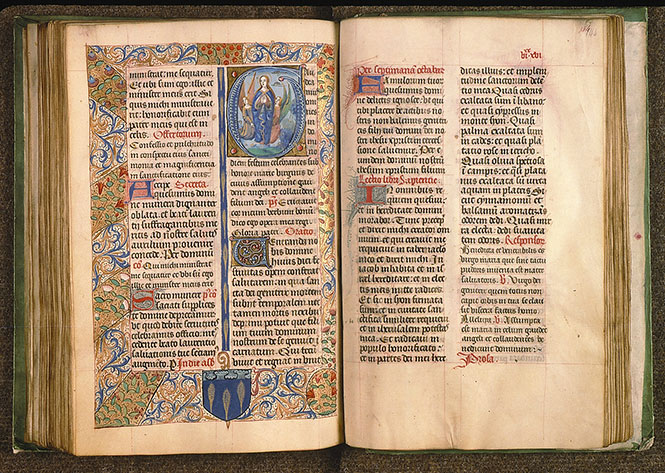 ministrat: me sequatur.
Et ubi sum ego: illic et
minister meus erit Si
quis michi ministrave
rit: honorificabit eum
pater meus qui est in
celis. Offertorium.
Confessio et pulchritudo
in conspectu eius sancti
monia et magnificentia
in sanctificatione eius.
Accipe Secreta
quesumus domi
ne munera dignanter
oblata. et beati lauren
tij suffragantibus me
ritis ad nostre salutis
auxilium provenire
concede. Per dominū
cō. Qui michi ministrat
me sequatur et ubi sū ego
illic et minister meus erit
Sacro munere pcō
saciati supplices
te domine deprecamur
ut quod debite servitutis
celebramus officio. inter
cedente beato laurentio
salvationis tue senciam
augmētū. P In die
diem festum celebrantes sub
honore marie virginis de
cuius assumptione gau
dent angeli et collaudent
filium dei. ps Eructavit
cor meum verbum bonum
dico ego opera mea regi.
Gloria patri. Oratio.
Veneranda no
bis domine
huius diei fe
stivitas opem conferat
salutarem. in qua san
cta dei genitrix mortem
subiit temporalem. nec
tamen mortis nexibus
deprimi potuit que fili
um tuum dominum
nostrum de se genuit in
carnatum. Qui tecū
vivit et regnat in unit
vi xvi
Per septimanā collecta
Famulorum tuor
quesumus domi
ne delictis ignosce. ut qui
tibi placere de actibus no
stris non valemus geniti
cis filij tui domini dei no
stri ihesu xpristi interces
sione salvemur. Per e
undem dominū nostrū
ihesum xpristum filium
Lectio libri Sapientie
In omnibus re
quiem quesivi.
et in hereditate domini
morabor. Tunc precepit
et dixit michi creator om
nium. et qui creavit me
requievit in tabernaculo
meo et dixit michi. In
iacob inhabita et in is
rahel hereditare. et in elec
tis meis mitte radices.
Et sic in syon firmata
sum: et in civitate san
ctificata similiter requievi
et in iherusalem potestas
mea. Et radicavi in
populo honorificato.
et in partes dei mei here
ditas illius: et in plenitu
dine sanctorum dete
tio mea Quasi cedrus
exaltata sum ī libano:
et quasi cypressus in
monte syon. Quasi
palma exaltata sum
in cades: et quasi plan
tacio rose in iericho.
Quasi oliva speciosa
ī campis: et quasi plata
nus exaltata sū iuxta
aquam in plateis. Si
cut cynnamomū et
balsamū aromatizās
odorem dedi. Quasi mir
ra electa: dedi suavita
tem odoris. Responsor.
Benedicta et venerabilis es
virgo maria que sine tactu
pudoris inventa est mater
salvatoris. V. Virgo dei
genitrix quem totus non
capit orbis in tua se clausit
viscera factus homo.
Alleluya. V. Assumpta
est maria in celum gaudēt
angeli et collaudantes be
nedicunt dominum.
Prosa.